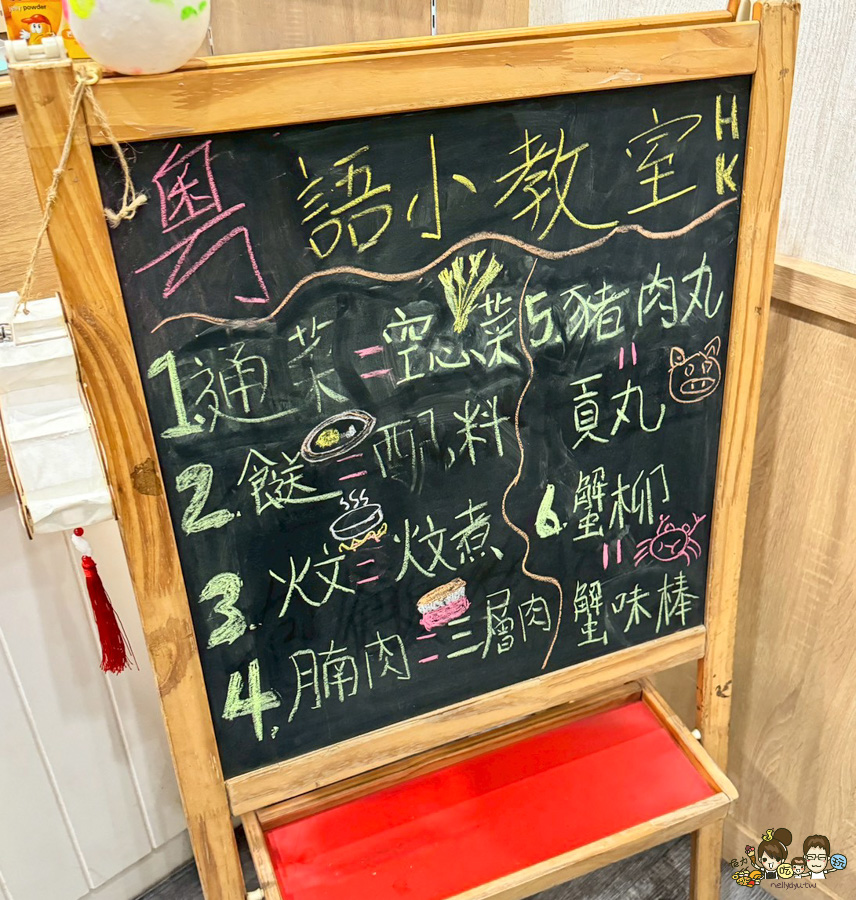 powder
粵語小教室 HK
1.通菜=空心菜
2.餸=配料
3.炆=炆煮
4.腩肉=三層肉
5.豬肉丸
=
貢丸
6.蟹柳
=
蟹味棒
nellydyu.tw